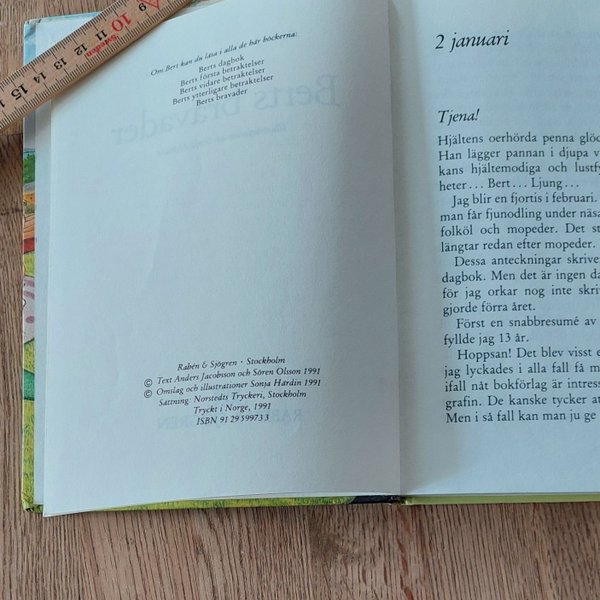 9 10 11 12 13 14 15
Sweden
Om Bert kan du läsa i alla de här böckerna:
Berts dagbok
Berts första betraktelser
Berts vidare betraktelser
Berts ytterligare betraktelser
Berts bravader
Berts bravader
Rabén & Sjögren · Stockholm
© Text Anders Jacobsson och Sören Olsson 1991
© Omslag och illustrationer Sonja Härdin 1991
Sättning: Norstedts Tryckeri, Stockholm
Tryckt i Norge, 1991
ISBN 91 29 59973 3
2 januari
Tjena!
Hjältens oerhörda penna glöd
Han lägger pannan i djupa v
kans hjältemodiga och lustfy
heter... Bert... Ljung...
Jag blir en fjortis i februari.
man får fjunodling under näsa
folköl och mopeder. Det st
längtar redan efter mopeder.
Dessa anteckningar skriver
dagbok. Men det är ingen da
för jag orkar nog inte skri
gjorde förra året.
Först en snabbresumé av
fyllde jag 13 år.
Hoppsan! Det blev visst e
jag lyckades i alla fall få m
ifall nåt bokförlag är intress
grafin. De kanske tycker at
Men i så fall kan man ju ge